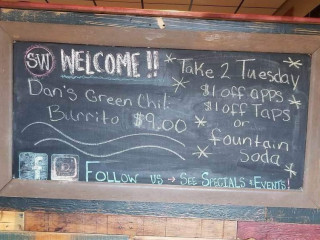 SW WELCOME!!
Dan's Green Chili
Burrito $9.00
Take 2 Tuesday
$1 off apps
$1 off Taps
or
fountain
Soda
f
FOLLOW US → SEE SPECIALS & EVENTS!